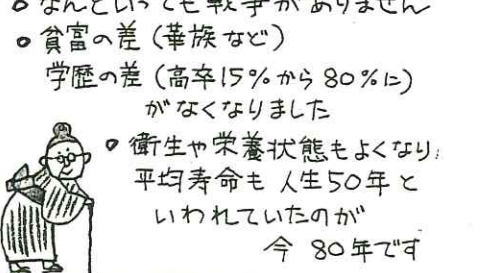 ○ なんといっても戦争がありません
○ 貧富の差（華族など）
学歴の差（高卒15％から80％に）
がなくなりました
○ 衛生や栄養状態もよくなり、
平均寿命も人生50年と
いわれていたのが
今 80年です